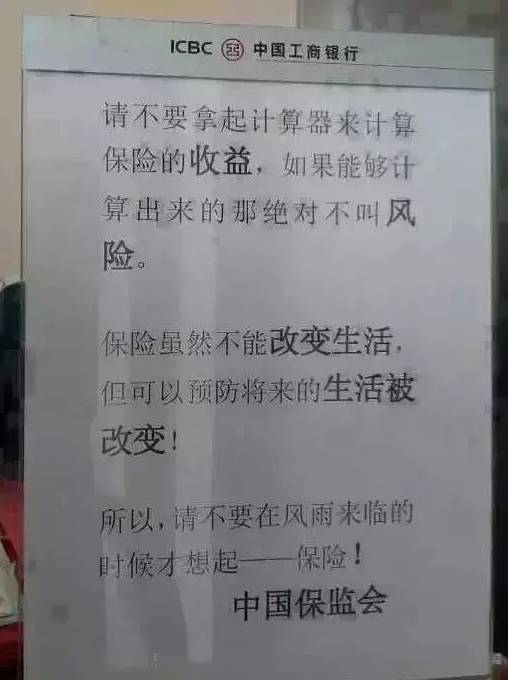 ICBC 中国工商银行
请不要拿起计算器来计算
保险的收益，如果能够计
算出来的那绝对不叫风
险。
保险虽然不能改变生活，
但可以预防将来的生活被
改变！
所以，请不要在风雨来临的
时候才想起——保险！
中国保监会